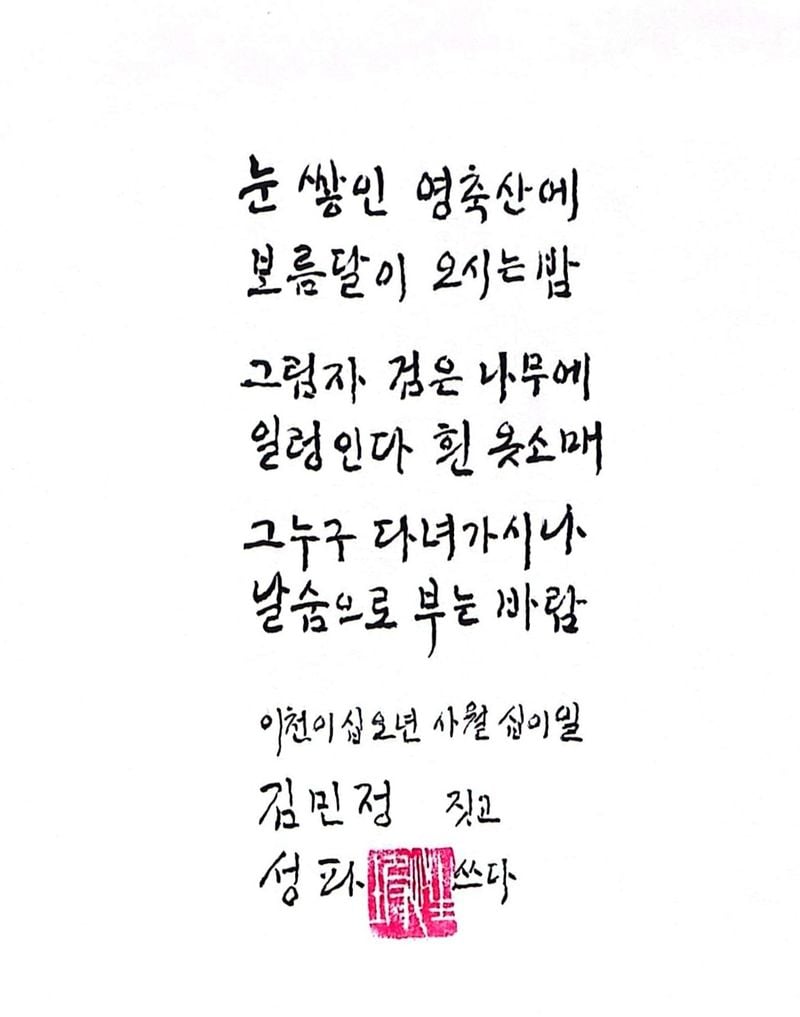 눈 쌓인 영축산에
보름달이 오시는 밤
그림자 검은 나무에
일렁인다 흰 옷소매
그 누구 다녀가시나
날숨으로 부는 바람
이천이십오년 사월 십이일
김민정 짓고
성파 쓰다